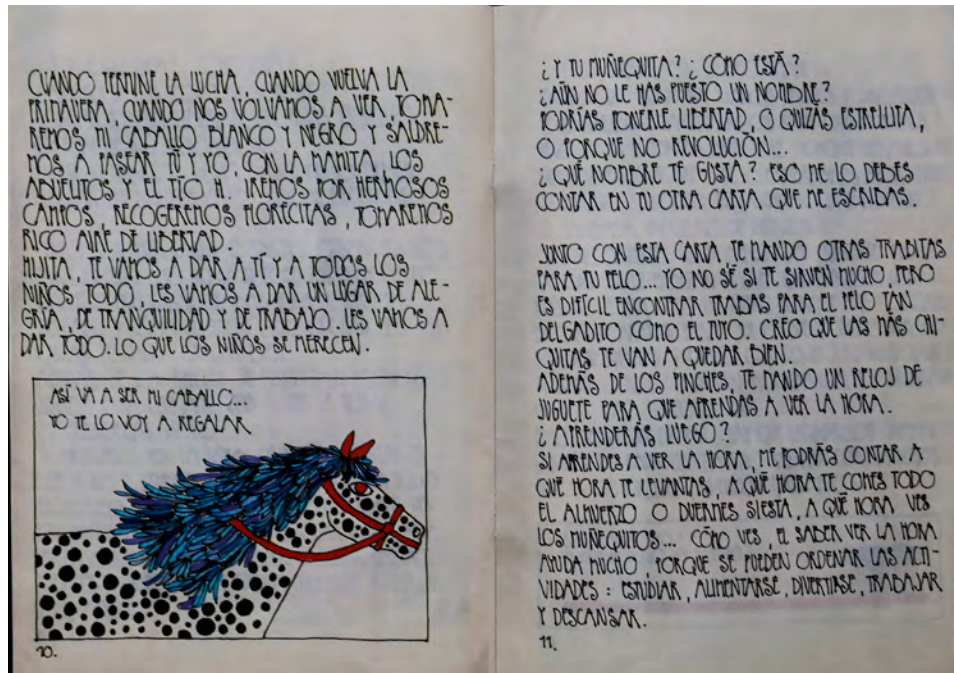 CUANDO TERMINE LA LUCHA, CUANDO VUELVA LA
PRIMAVERA, CUANDO NOS VOLVAMOS A VER, TOMA-
REMOS MI CABALLO BLANCO Y NEGRO Y SALDRE-
MOS A PASEAR TÚ Y YO, CON LA MAMITA, LOS
ABUELITOS Y EL TÍO H. IREMOS POR HERMOSOS
CAMPOS, RECOGEREMOS FLORECITAS, TOMAREMOS
RICO AIRE DE LIBERTAD.
HIJITA, TE VAMOS A DAR A TÍ Y A TODOS LOS
NIÑOS TODO, LES VAMOS A DAR UN LUGAR DE ALE-
GRÍA, DE TRANQUILIDAD Y DE TRABAJO. LES VAMOS A
DAR TODO. LO QUE LOS NIÑOS SE MERECEN.
ASÍ VA A SER MI CABALLO...
YO TE LO VOY A REGALAR
10.
¿Y TU MUÑEQUITA? ¿CÓMO ESTÁ?
¿AÚN NO LE HAS PUESTO UN NOMBRE?
PODRÍAS PONERLE LIBERTAD, O QUIZÁS ESTRELLITA,
O PORQUE NO REVOLUCIÓN...
¿QUÉ NOMBRE TE GUSTA? ESO ME LO DEBES
CONTAR EN TU OTRA CARTA QUE ME ESCRIBAS.
JUNTO CON ESTA CARTA, TE MANDO OTRAS TRABITAS
PARA TU PELO... YO NO SÉ SI TE SIRVEN MUCHO, PERO
ES DIFÍCIL ENCONTRAR TRABAS PARA EL PELO TAN
DELGADITO COMO EL TUYO. CREO QUE LAS MÁS CHI-
QUITAS TE VAN A QUEDAR BIEN.
ADEMÁS DE LOS PINCHES, TE MANDO UN RELOJ DE
JUGUETE PARA QUE APRENDAS A VER LA HORA.
¿APRENDERÁS LUEGO?
SI APRENDES A VER LA HORA, ME PODRÁS CONTAR A
QUÉ HORA TE LEVANTAS, A QUÉ HORA TE COMES TODO
EL ALMUERZO O DUERMES SIESTA, A QUÉ HORA VES
LOS MUÑEQUITOS... CÓMO VES, EL SABER VER LA HORA
AYUDA MUCHO, PORQUE SE PUEDEN ORDENAR LAS ACTI-
VIDADES: ESTUDIAR, ALIMENTARSE, DIVERTIRSE, TRABAJAR
Y DESCANSAR.
11.